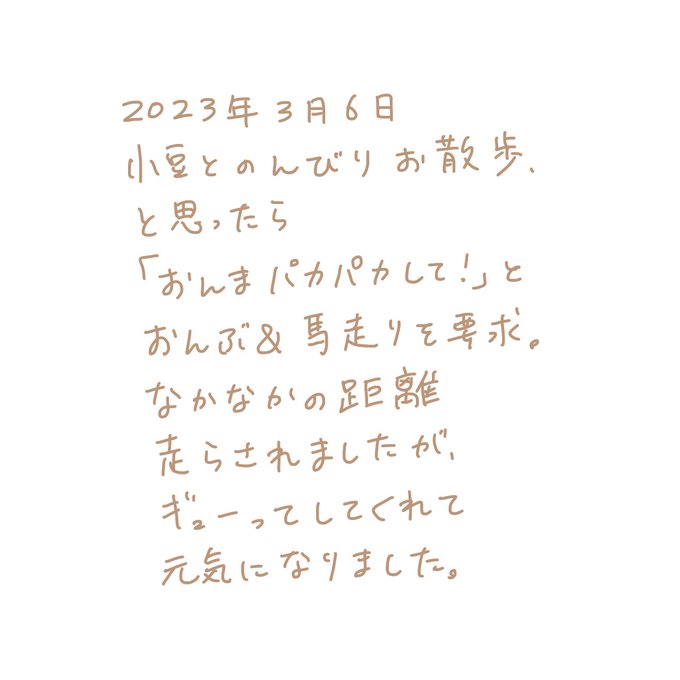 2023年3月6日
小豆とのんびりお散歩、
と思ったら
「おんまパカパカして!」と
おんぶ&馬走りを要求。
なかなかの距離
走らされましたが、
ギューってしてくれて
元気になりました。